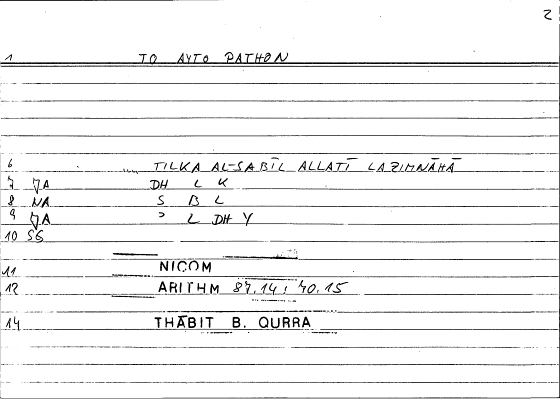 2
1 TO AYTO PATHON
6 TILKA AL-SABĪL ALLATĪ LAZIMNĀHĀ
7 JA DH L K
8 NA S B L
9 JA ɔ L DH Y
10 SG
11 NICOM
12 ARITHM 87.14 : 40.15
14 THĀBIT B. QURRA